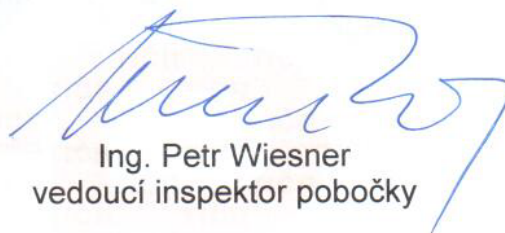 Ing. Petr Wiesner
vedoucí inspektor pobočky